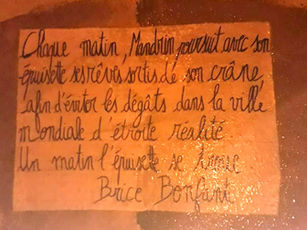 Chaque matin, Mandrin poursuit avec son
épuisette ses rêves sortis de son crâne,
afin d'éviter les dégâts dans la ville
mondiale d'étroite réalité.
Un matin l'épuisette se troue
Brice Bonfant